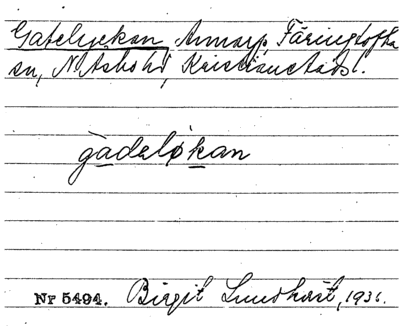 Gatelyckan, Annarp, Färingtofta
sn, N. Åsbo hd, Kristianstads l.
gàdelọkan
Nr 5494. Birgit Lundkvist, 1936.